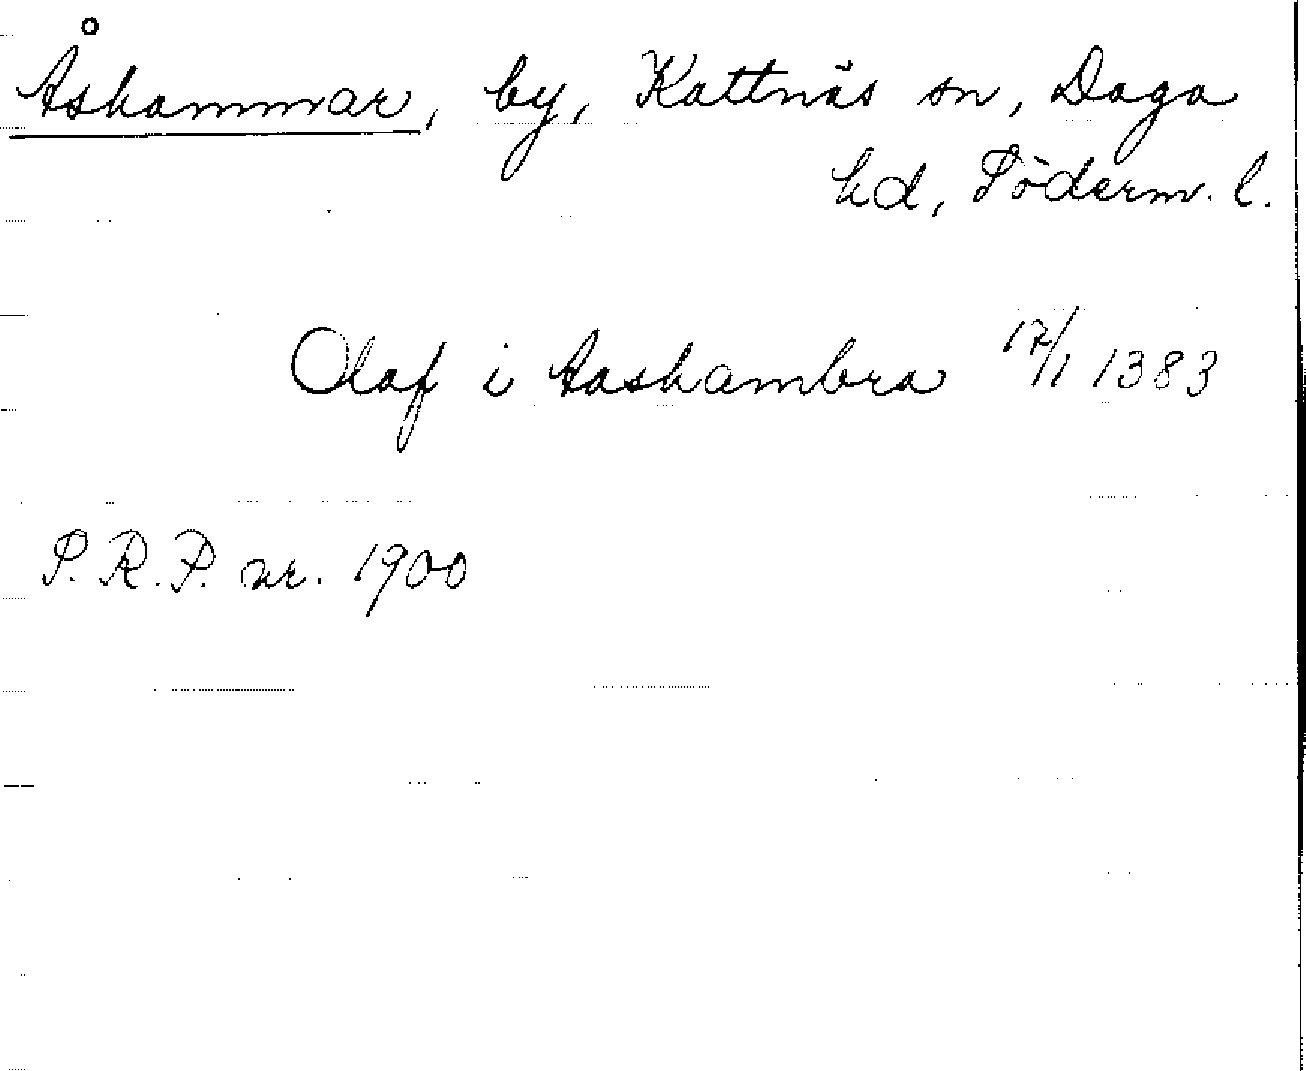 Åshammar, by, Kattnäs sn, Daga
hd, Söderm. l.
Olaf i Aashambra 17/1 1383
S.R.P. nr. 1900